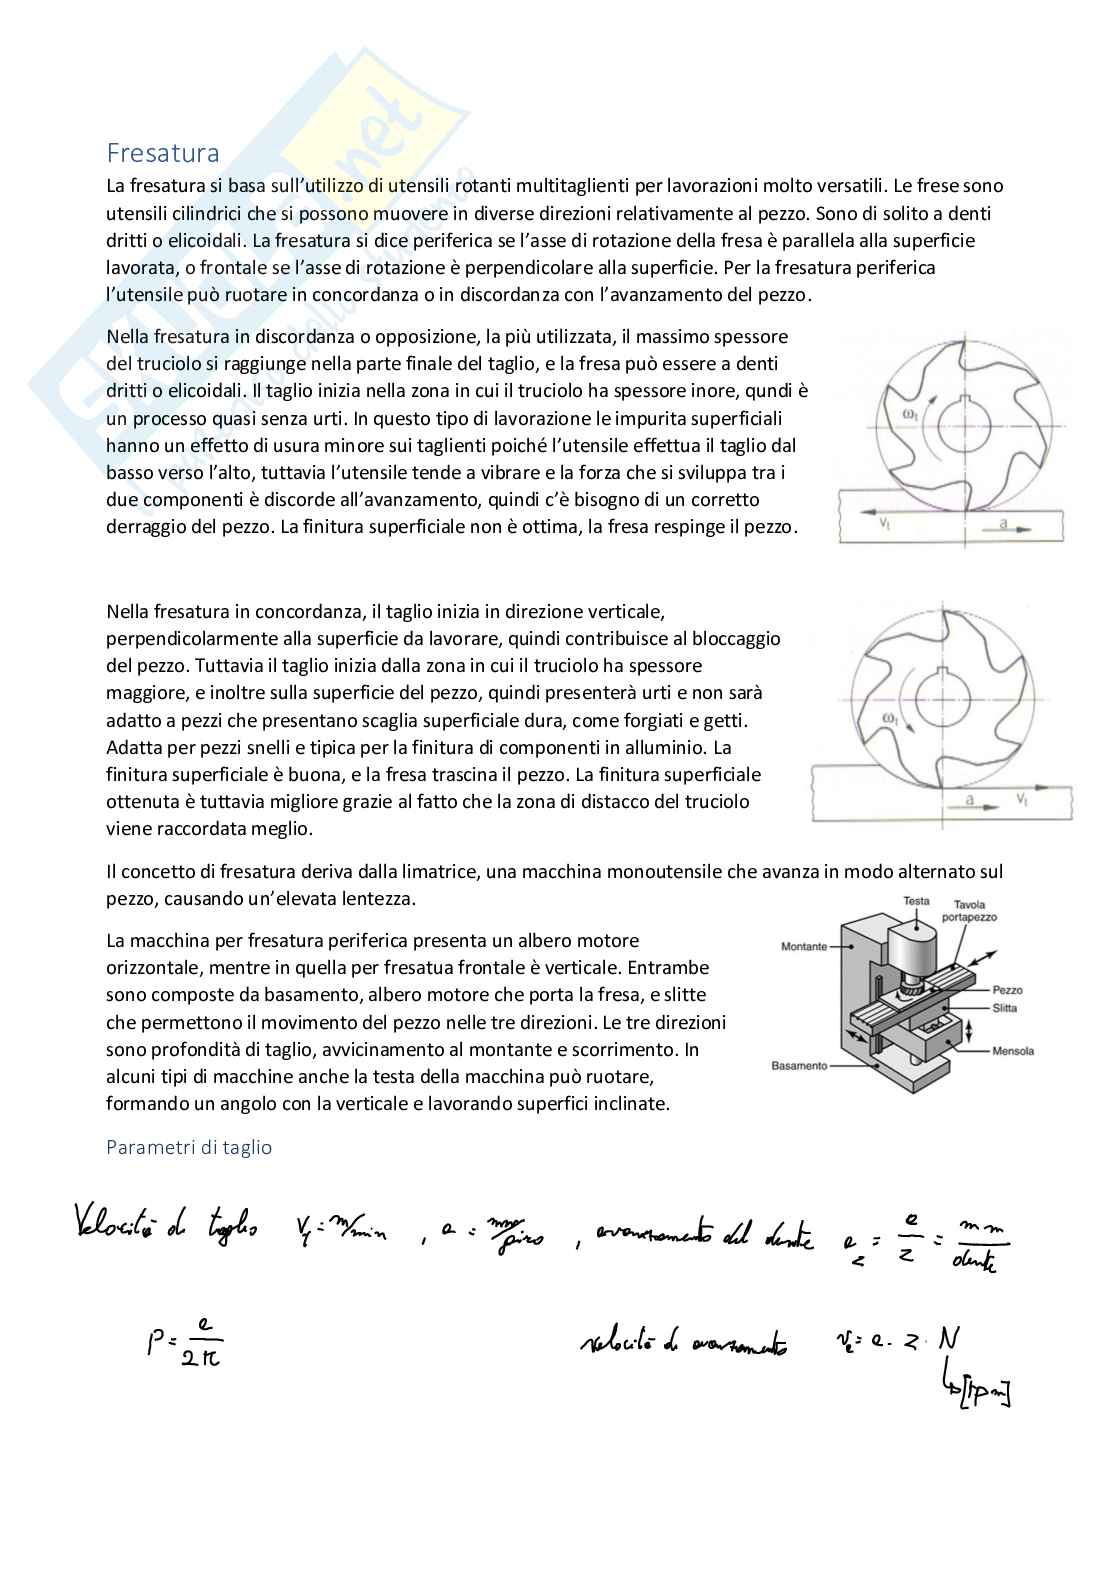 Fresatura
La fresatura si basa sull'utilizzo di utensili rotanti multitaglienti per lavorazioni molto versatili. Le frese sono
utensili cilindrici che si possono muovere in diverse direzioni relativamente al pezzo. Sono di solito a denti
dritti o elicoidali. La fresatura si dice periferica se l'asse di rotazione della fresa è parallela alla superficie
lavorata, o frontale se l'asse di rotazione è perpendicolare alla superficie. Per la fresatura periferica
l'utensile può ruotare in concordanza o in discordanza con l'avanzamento del pezzo.
Nella fresatura in discordanza o opposizione, la più utilizzata, il massimo spessore
del truciolo si raggiunge nella parte finale del taglio, e la fresa può essere a denti
dritti o elicoidali. Il taglio inizia nella zona in cui il truciolo ha spessore inore, qundi è
un processo quasi senza urti. In questo tipo di lavorazione le impurita superficiali
hanno un effetto di usura minore sui taglienti poiché l'utensile effettua il taglio dal
basso verso l'alto, tuttavia l'utensile tende a vibrare e la forza che si sviluppa tra i
due componenti è discorde all'avanzamento, quindi c'è bisogno di un corretto
derraggio del pezzo. La finitura superficiale non è ottima, la fresa respinge il pezzo.
ωt
Vt
a
Nella fresatura in concordanza, il taglio inizia in direzione verticale,
perpendicolarmente alla superficie da lavorare, quindi contribuisce al bloccaggio
del pezzo. Tuttavia il taglio inizia dalla zona in cui il truciolo ha spessore
maggiore, e inoltre sulla superficie del pezzo, quindi presenterà urti e non sarà
adatto a pezzi che presentano scaglia superficiale dura, come forgiati e getti.
Adatta per pezzi snelli e tipica per la finitura di componenti in alluminio. La
finitura superficiale è buona, e la fresa trascina il pezzo. La finitura superficiale
ottenuta è tuttavia migliore grazie al fatto che la zona di distacco del truciolo
viene raccordata meglio.
ωt
a
Vt
Il concetto di fresatura deriva dalla limatrice, una macchina monoutensile che avanza in modo alternato sul
pezzo, causando un'elevata lentezza.
La macchina per fresatura periferica presenta un albero motore
orizzontale, mentre in quella per fresatua frontale è verticale. Entrambe
sono composte da basamento, albero motore che porta la fresa, e slitte
che permettono il movimento del pezzo nelle tre direzioni. Le tre direzioni
sono profondità di taglio, avvicinamento al montante e scorrimento. In
alcuni tipi di macchine anche la testa della macchina può ruotare,
formando un angolo con la verticale e lavorando superfici inclinate.
Testa
Tavola
portapezzo
Montante
Pezzo
Slitta
Mensola
Basamento
Parametri di taglio
Velocità di taglio Vt = m/min , a = mm/giro , avanzamento del dente az = a/z = mm/dente
P = a/2π
velocità di avanzamento va = a · z · N
[rpm]
SKUOLA.net